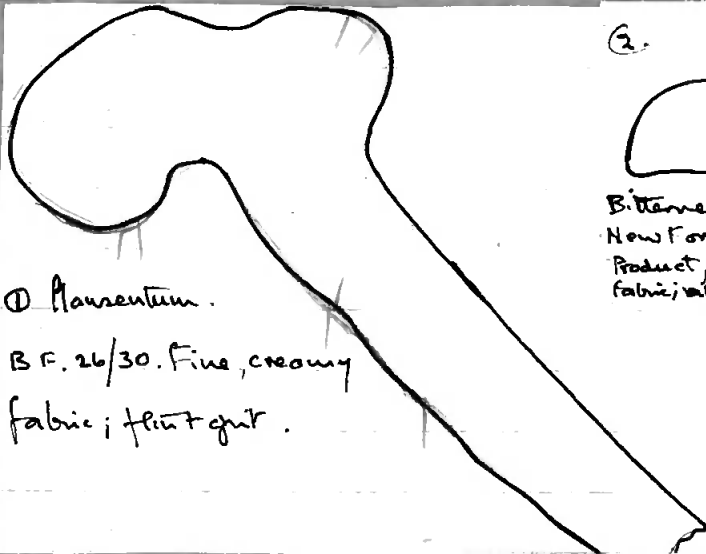 ① Clausentum.
B F. 26/30. Fine, creamy
fabric; flint grit.
②.
Bitterne
New For
Product,
fabric; wi